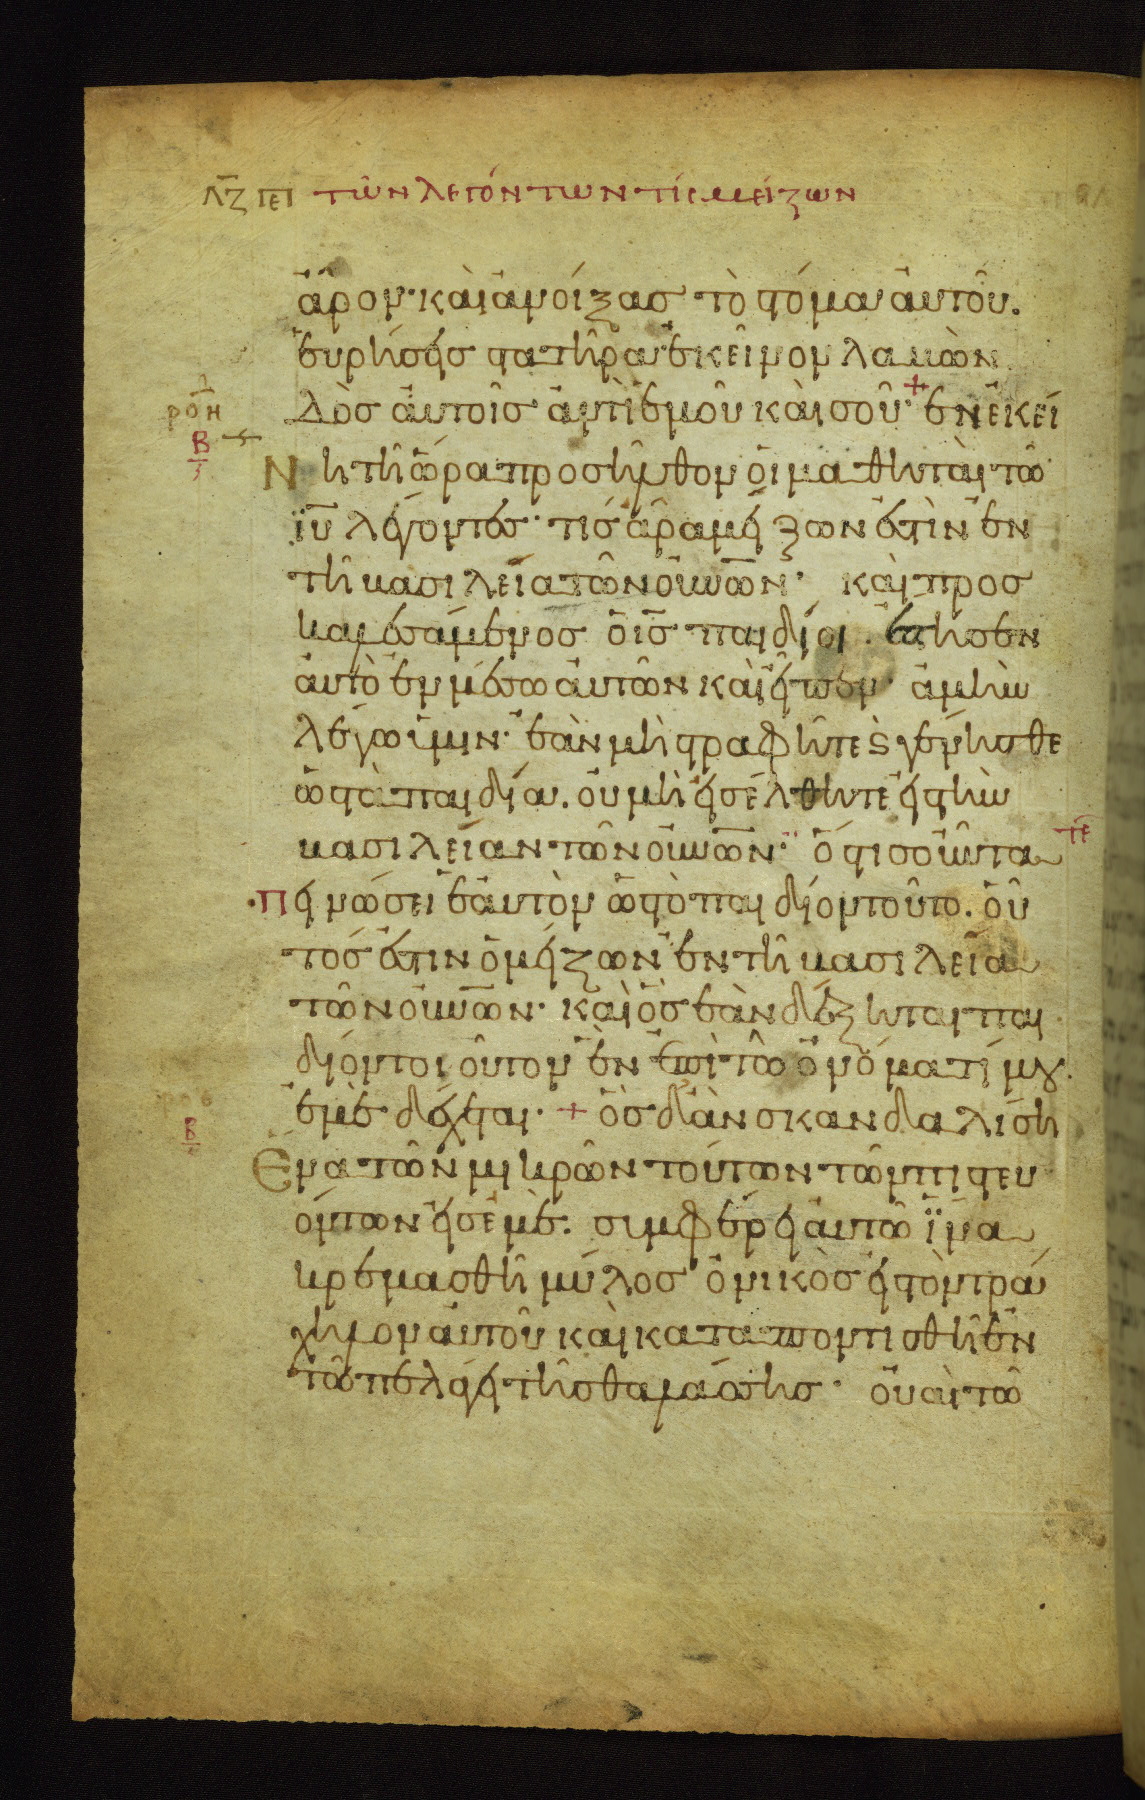 λζ πει των λεγόντων τίς μείζων
ἆρον· καὶ ἀνοίξας τὸ στόμα αὐτοῦ.
εὑρήσης στατῆρα ἐκεῖνον λαβὼν
δὸς αὐτοῖς ἀντὶ ἐμοῦ καὶ σοῦ· + ἐν ἐκεί
ροη
β
ς
νη τῆ ὥρα προσῆλθον οἱ μαθηταὶ τῶ
ϊυ λέγοντες· τίς ἄρα μείζων ἐστὶν ἐν
τῆ βασιλεία τῶν οὐνῶν· καὶ προσ
καλεσάμενος ὁ ις παιδίοι. ἔστησεν
αὐτὸ ἐν μέσω αὐτῶν καὶ εἶπεν· ἀμὴν
λέγω ὑμιν· ἐὰν μὴ στραφῆτε ϗ γένησθε
ὡς τὰ παιδία. οὐ μὴ εἰσέλθητε εἰς τὴν
βασιλείαν τῶν οὐνῶν· ὅστις οὖν τα
πεινώσει ἑαυτὸν ὡς τὸ παιδίον τοῦτο. οὗ
τός ἐστιν ὁ μείζων ἐν τῆ βασιλεία
τῶν οὐνῶν· καὶ ὃς ἐὰν δέξηται παι
δίον τοιοῦτον ἓν ἐπὶ τῶ ὀνόματί μου.
ἐμὲ δέχεται· + ὃς δ' ἂν σκανδαλίση
β
ἕνα τῶν μικρῶν τούτων τῶν πιστευ
όντων εἰς ἐμέ. συμφέρει αὐτῶ ἵνα
κρεμασθῆ μύλος ὀνικὸς εἰς τὸν τρά
χηλον αὐτοῦ καὶ καταποντισθῆ ἐν
τῶ πελάγει τῆς θαλάσσης· οὐαὶ τῶ